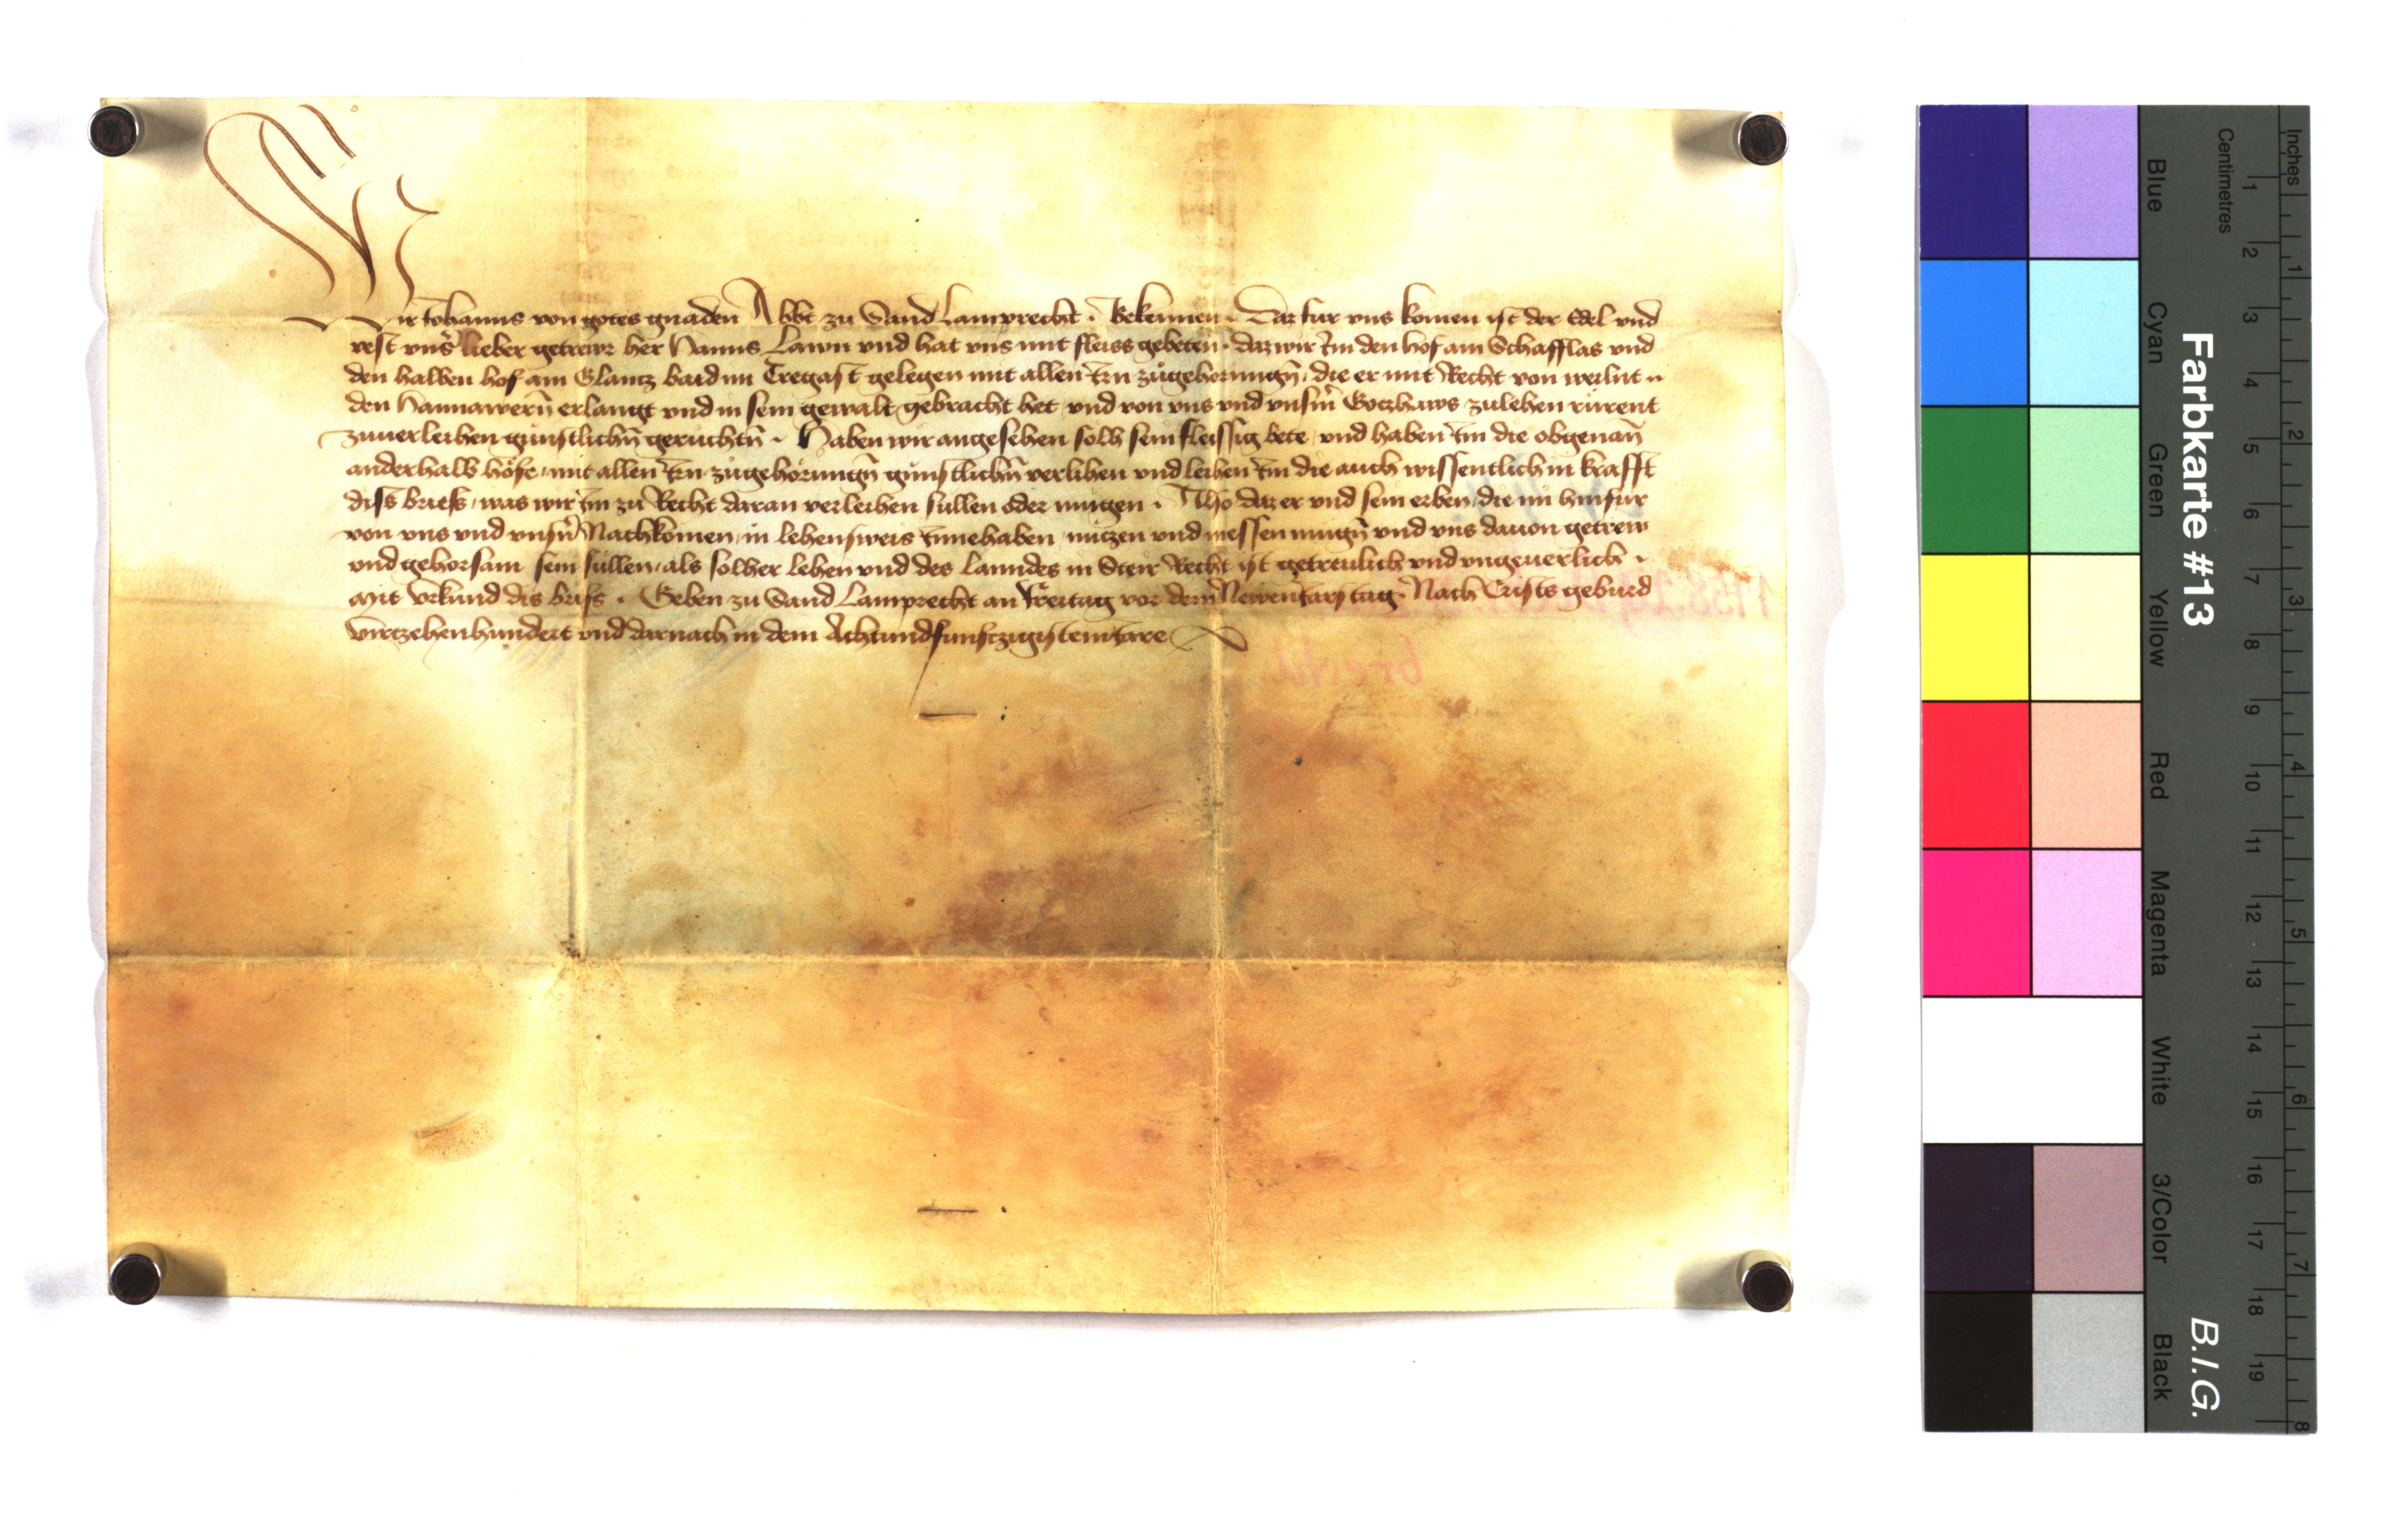 Wir Johanns von gotes gnaden Abbt zu Sand Lamprecht · Bekennen · Daz fur vns komen ist der Edel vnd
vest vnsr lieber getrewr her Hanns Lawn vnd hat vns mit fleiss gebeten · daz wir Im den hof am Schafflas vnd
den halben hof am Glantz baid im Tregast gelegen mit allen Irn zugehorungn̄ die er mit Recht von weilnt
den Hannawern̄ erlangt vnd in sein gewalt gebracht het vnd von vns vnd vnsm̄ Gotzhaws zulehen rurent
zuuerleihen gunstlichn̄ geruchtn̄ · Haben wir angesehen solh sein fleissig bete vnd haben Im die obgenan̄
anderhalb höfe mit allen Irn zugehörungn̄ gunstlichn̄ verlihen vnd leihen Im die auch wissentlich in krafft
diss briefs was wir Im zu Recht daran verleihen sullen oder mugen · Also daz er vnd sein erben die nu hinfur
von vns vnd vnsn̄ Nachkomen in lehensweis Innehaben nutzen vnd niessen mugn̄ vnd vns dauon getrew
vnd gehorsam sein sullen als solher lehen vnd des Lanndes in Steir Recht ist getreulich vnd vngeuerlich ·
Mit vrkund dis brifs · Geben zu Sand Lamprecht an Freitag vor dem Newen Jars tag Nach Crists geburd
virtzehenhundert vnd darnach in dem Achtundfunfczigistem Jare
brecht
Inches
Centimetres
Blue
Cyan
Green
Yellow
Red
Magenta
White
3/Color
Black
Farbkarte #13
B.I.G.
1 2 3 4 5 6 7 8 9 10 11 12 13 14 15 16 17 18 19
1 2 3 4 5 6 7 8